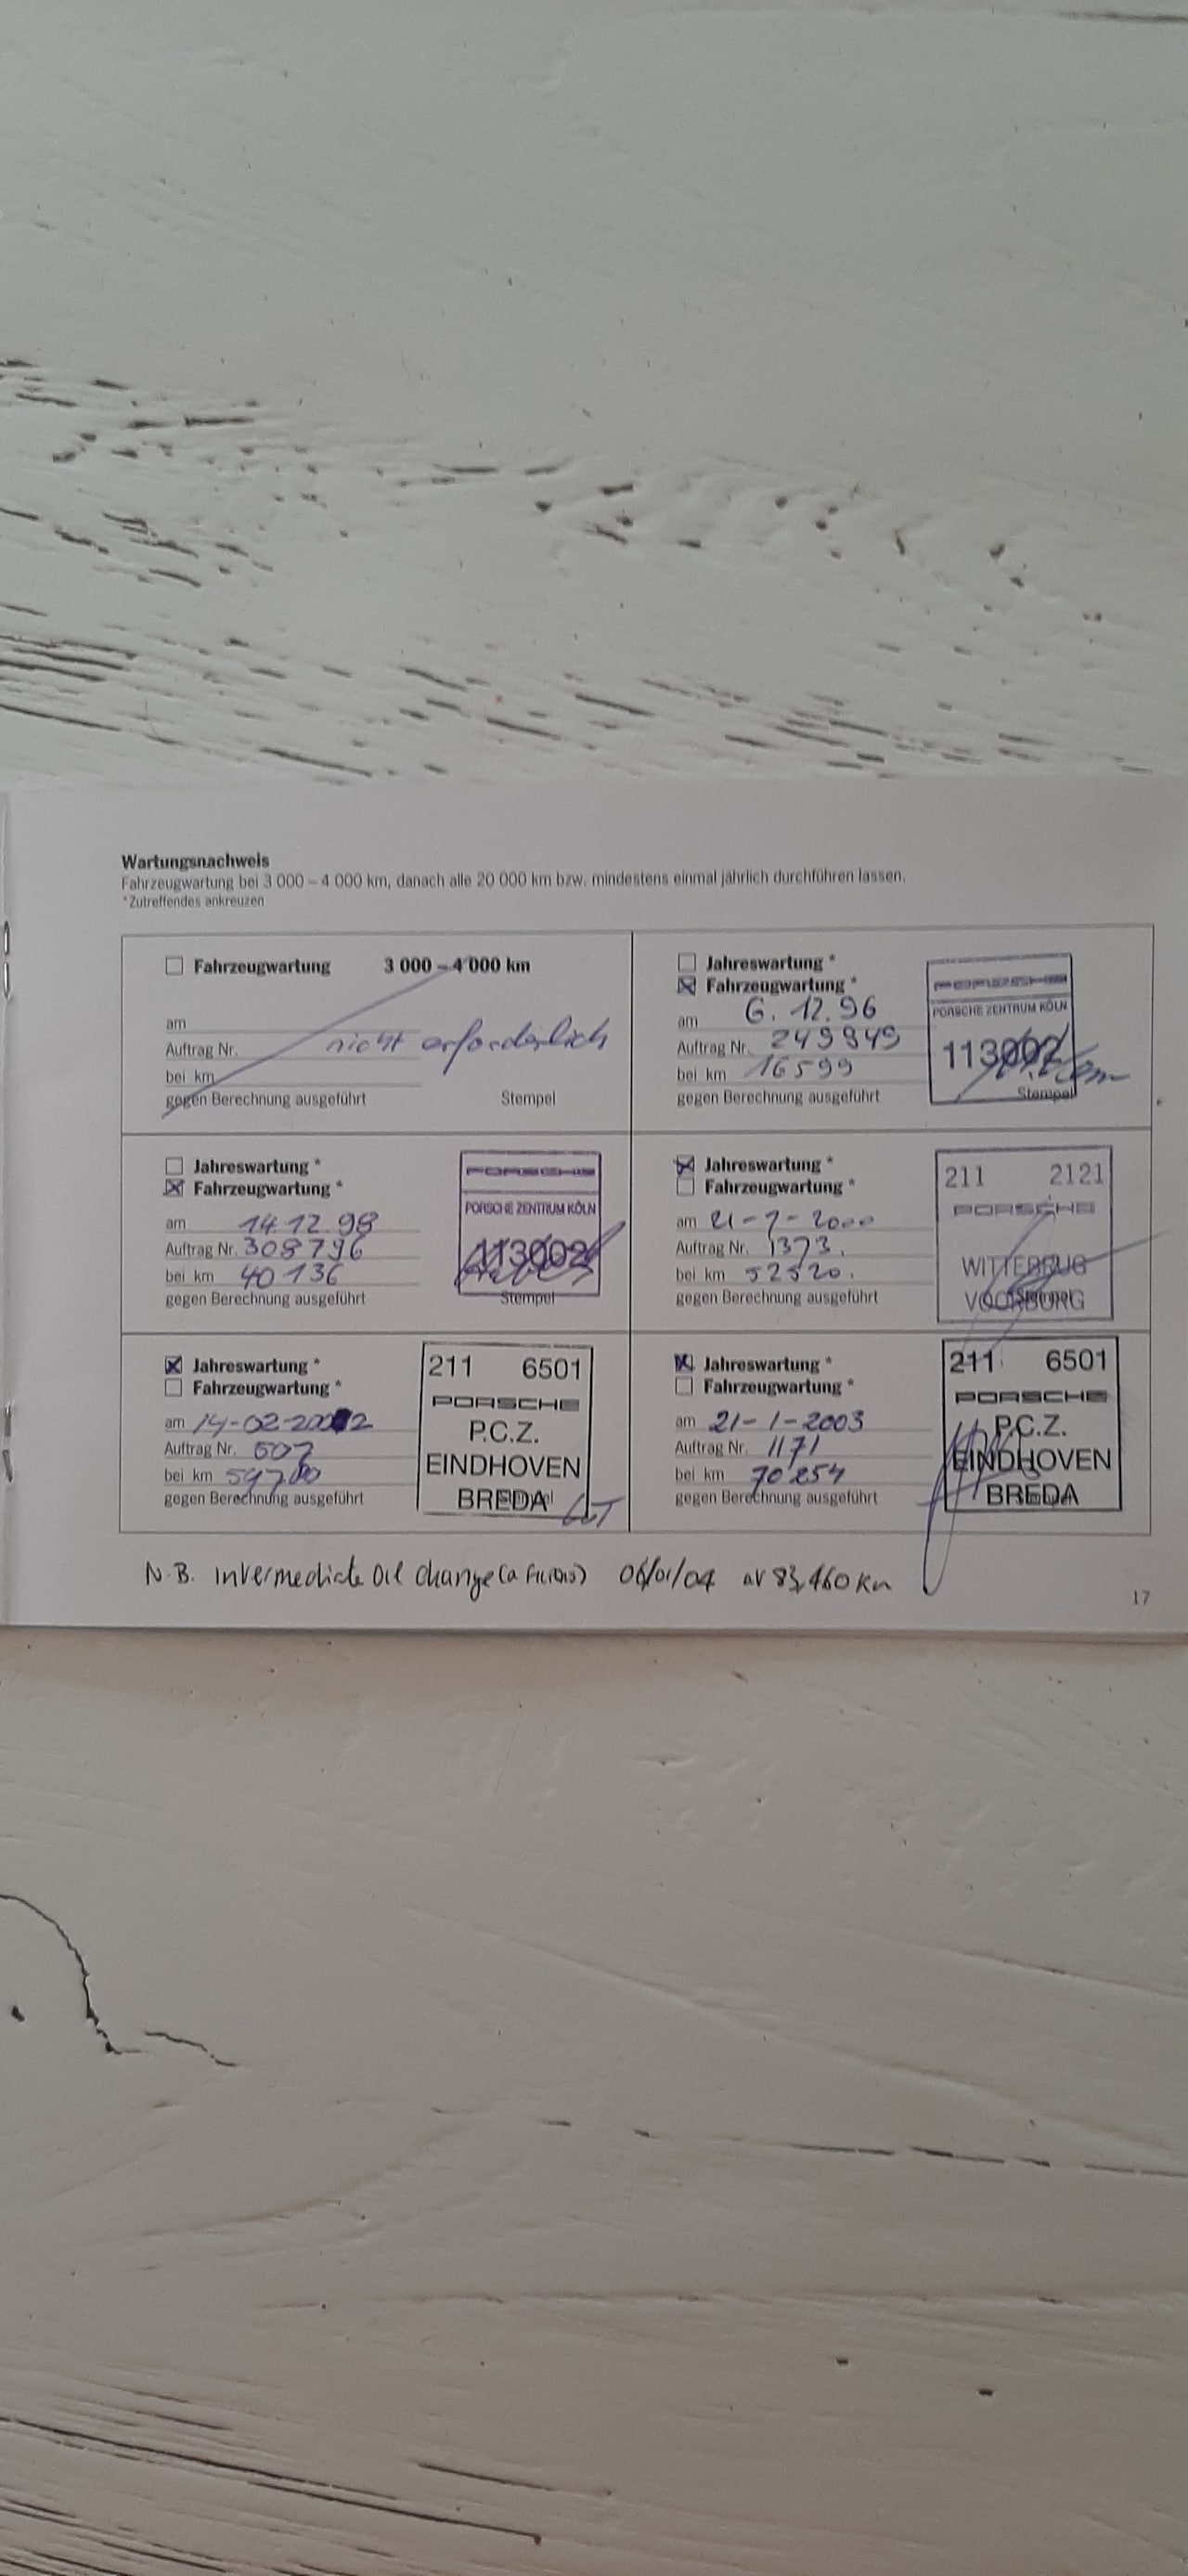 Wartungsnachweis
Fahrzeugwartung bei 3 000 – 4 000 km, danach alle 20 000 km bzw. mindestens einmal jährlich durchführen lassen.
*Zutreffendes ankreuzen
Fahrzeugwartung 3 000 – 4 000 km
am
Auftrag Nr. nicht erforderlich
bei km
gegen Berechnung ausgeführt Stempel
Jahreswartung *
Fahrzeugwartung *
am 6. 12. 96
Auftrag Nr. 249949
bei km 16599
gegen Berechnung ausgeführt
PORSCHE
PORSCHE ZENTRUM KÖLN
113002
Stempel
Jahreswartung *
Fahrzeugwartung *
am 14.12.98
Auftrag Nr. 308796
bei km 40 136
gegen Berechnung ausgeführt
PORSCHE
PORSCHE ZENTRUM KÖLN
113002
Stempel
Jahreswartung *
Fahrzeugwartung *
am 21-7-2000
Auftrag Nr. 1373.
bei km 52520.
gegen Berechnung ausgeführt
211 2121
PORSCHE
WITTEBRUG
VOORBURG
Jahreswartung *
Fahrzeugwartung *
am 14-02-2002
Auftrag Nr. 507
bei km 59700
gegen Berechnung ausgeführt
211 6501
PORSCHE
P.C.Z.
EINDHOVEN
BREDA
Jahreswartung *
Fahrzeugwartung *
am 21-1-2003
Auftrag Nr. 1171
bei km 70254
gegen Berechnung ausgeführt
211 6501
PORSCHE
P.C.Z.
EINDHOVEN
BREDA
N.B. intermediate Oil change 06/01/04 at 83,460 Km
17